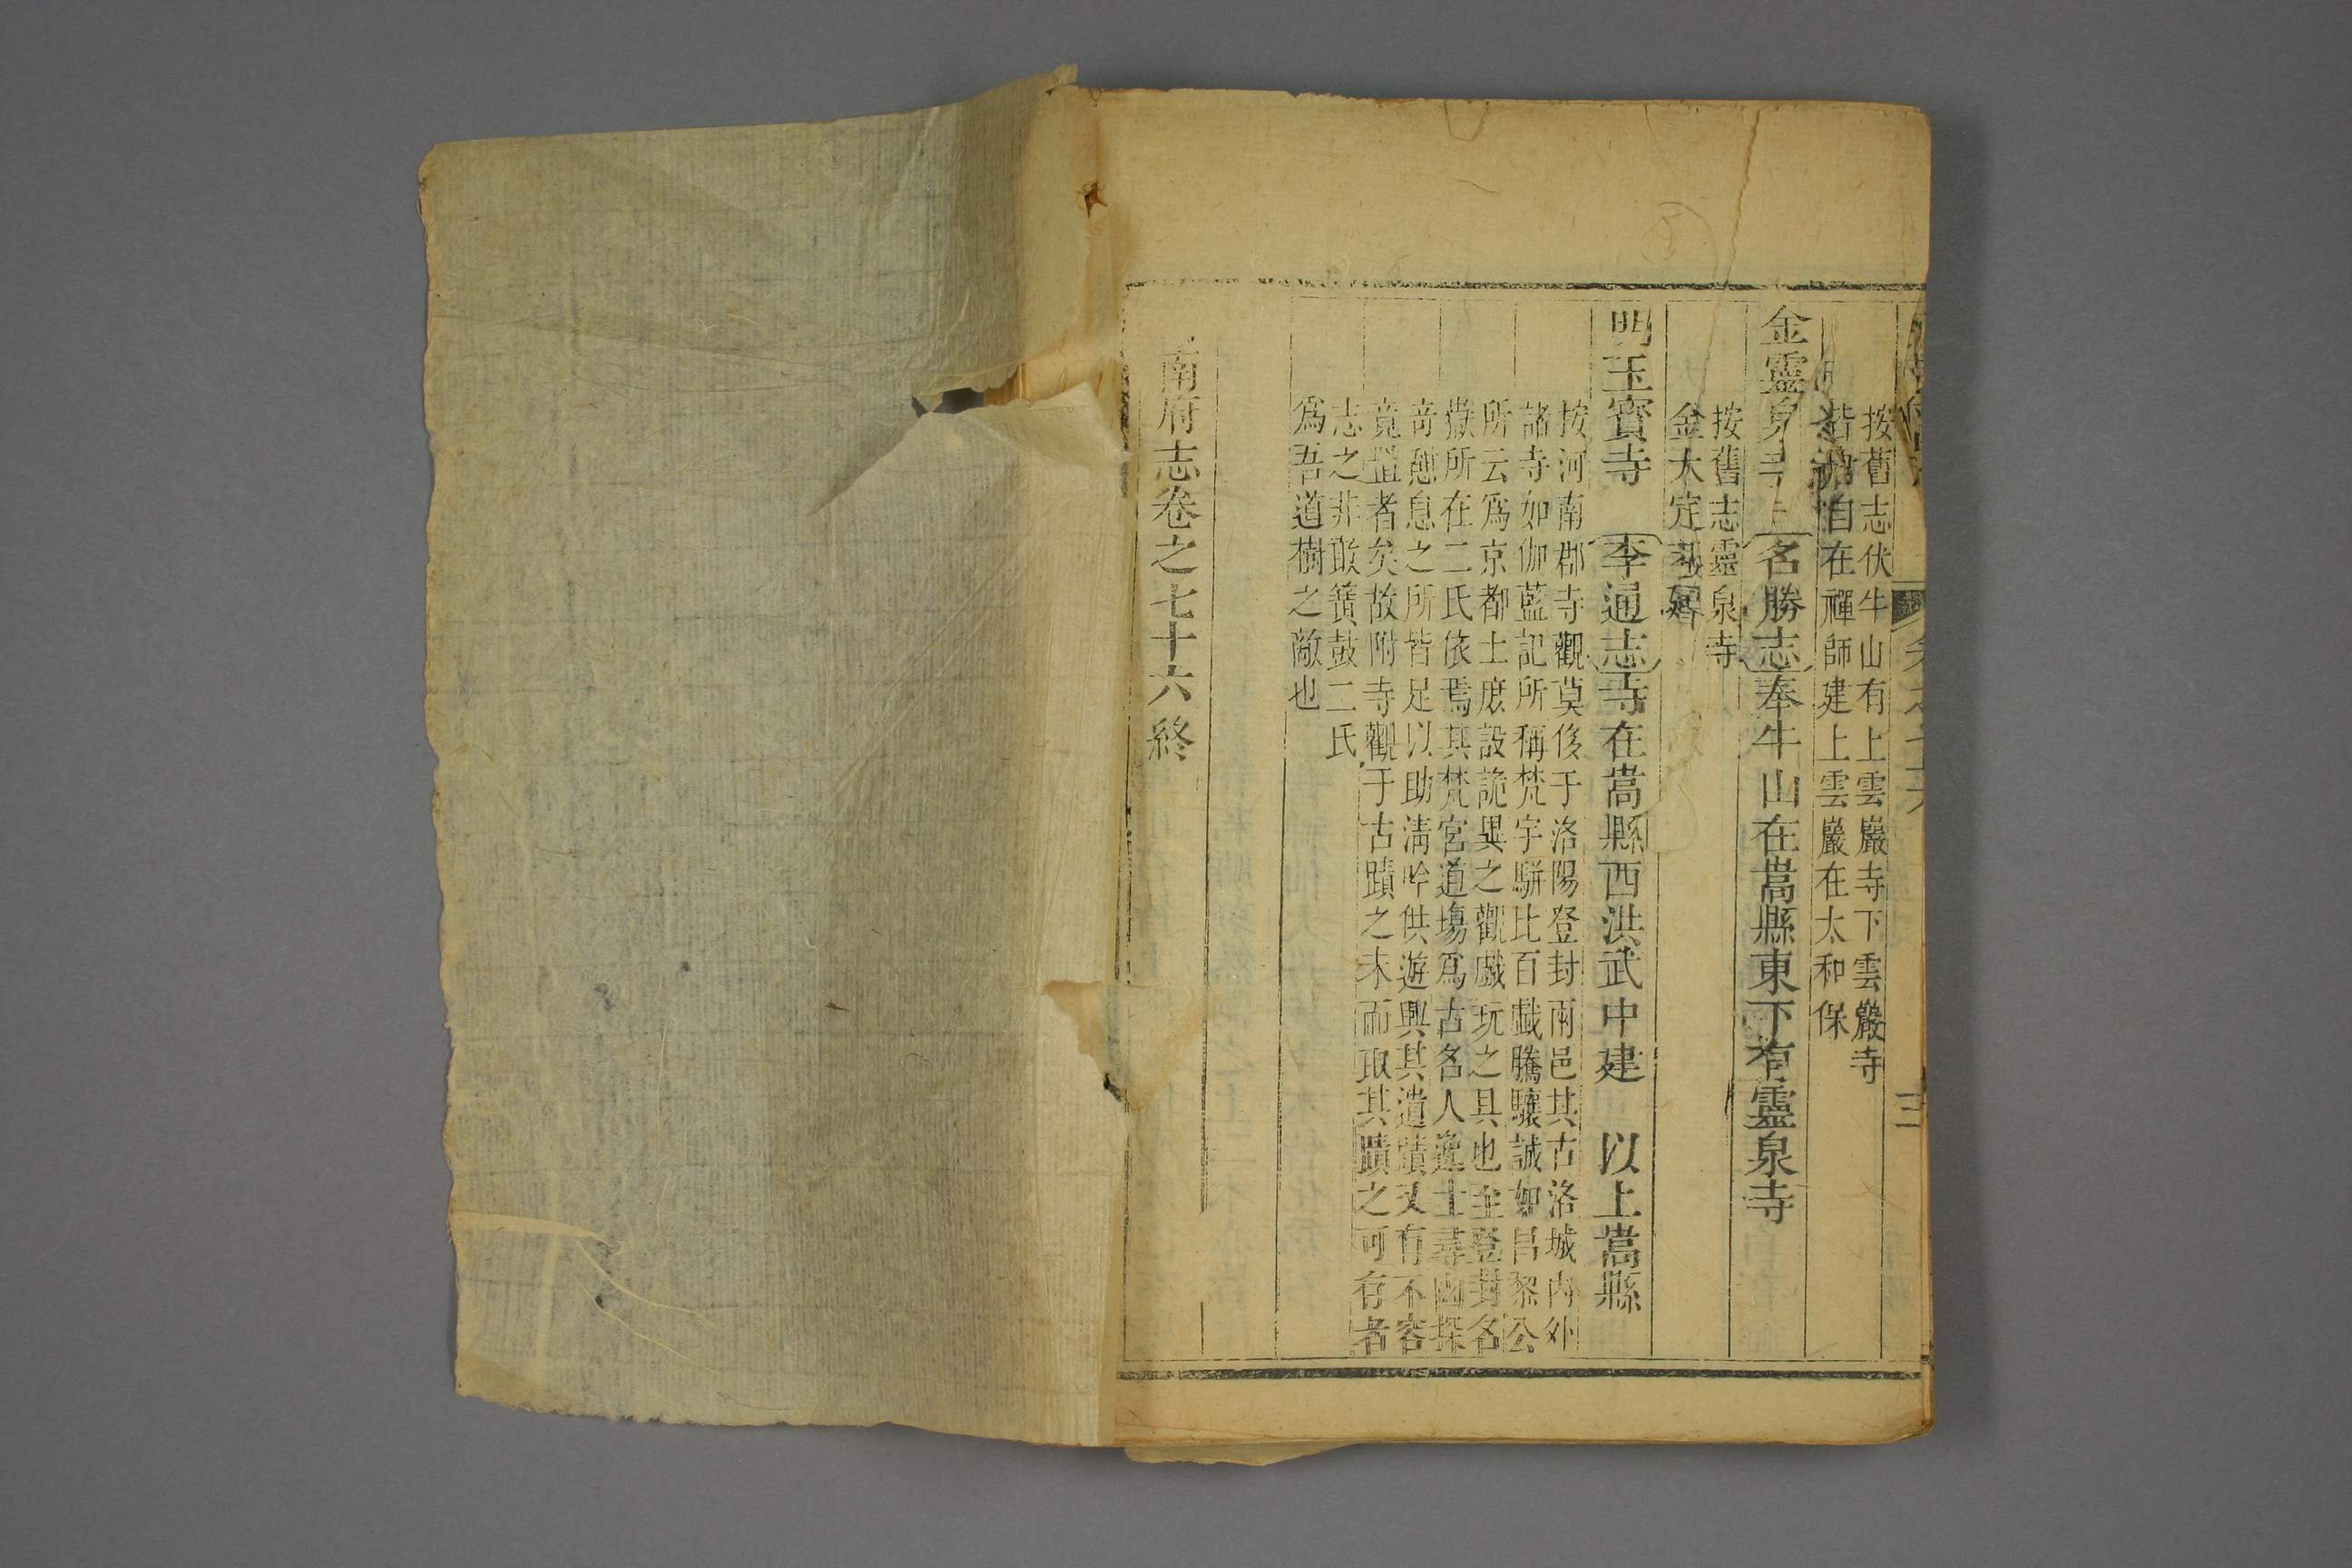 卷之七十六
三
按舊志伏牛山有上雲巖寺下雲巖寺
皆自在禪師建上雲巖在太和保
金靈泉寺 名勝志奉牛山在嵩縣東下有靈泉寺
按舊志靈泉寺
金大定
明玉寶寺 李通志寺在嵩縣西洪武中建 以上嵩縣
按河南郡寺觀莫侈于洛陽登封兩邑其古洛城內外
諸寺如伽藍記所稱梵宇駢比百戲騰驤誠如呂黎公
所云爲京都士庶設詭異之觀戲玩之具也至登封名
嶽所在二氏依焉其梵宮道塲爲古名人逸士尋幽探
竒憩息之所皆足以助淸吟供遊興其遺蹟又有不容
竟者矣故附寺觀于古蹟之末而取其蹟之可存者
志之非敢簧鼓二氏
爲吾道樹之敵也
南府志卷之七十六終